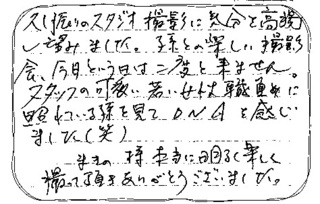 久し振りのスタジオ撮影に気分も高揚
し望みました。孫との楽しい撮影
会、今日という日は二度と来ません。
スタッフの可愛い若い女性職員に
照れている孫を見てDNAを感じ
ました(笑)
様 本当に明るく楽しく
撮って頂きありがとうございました。